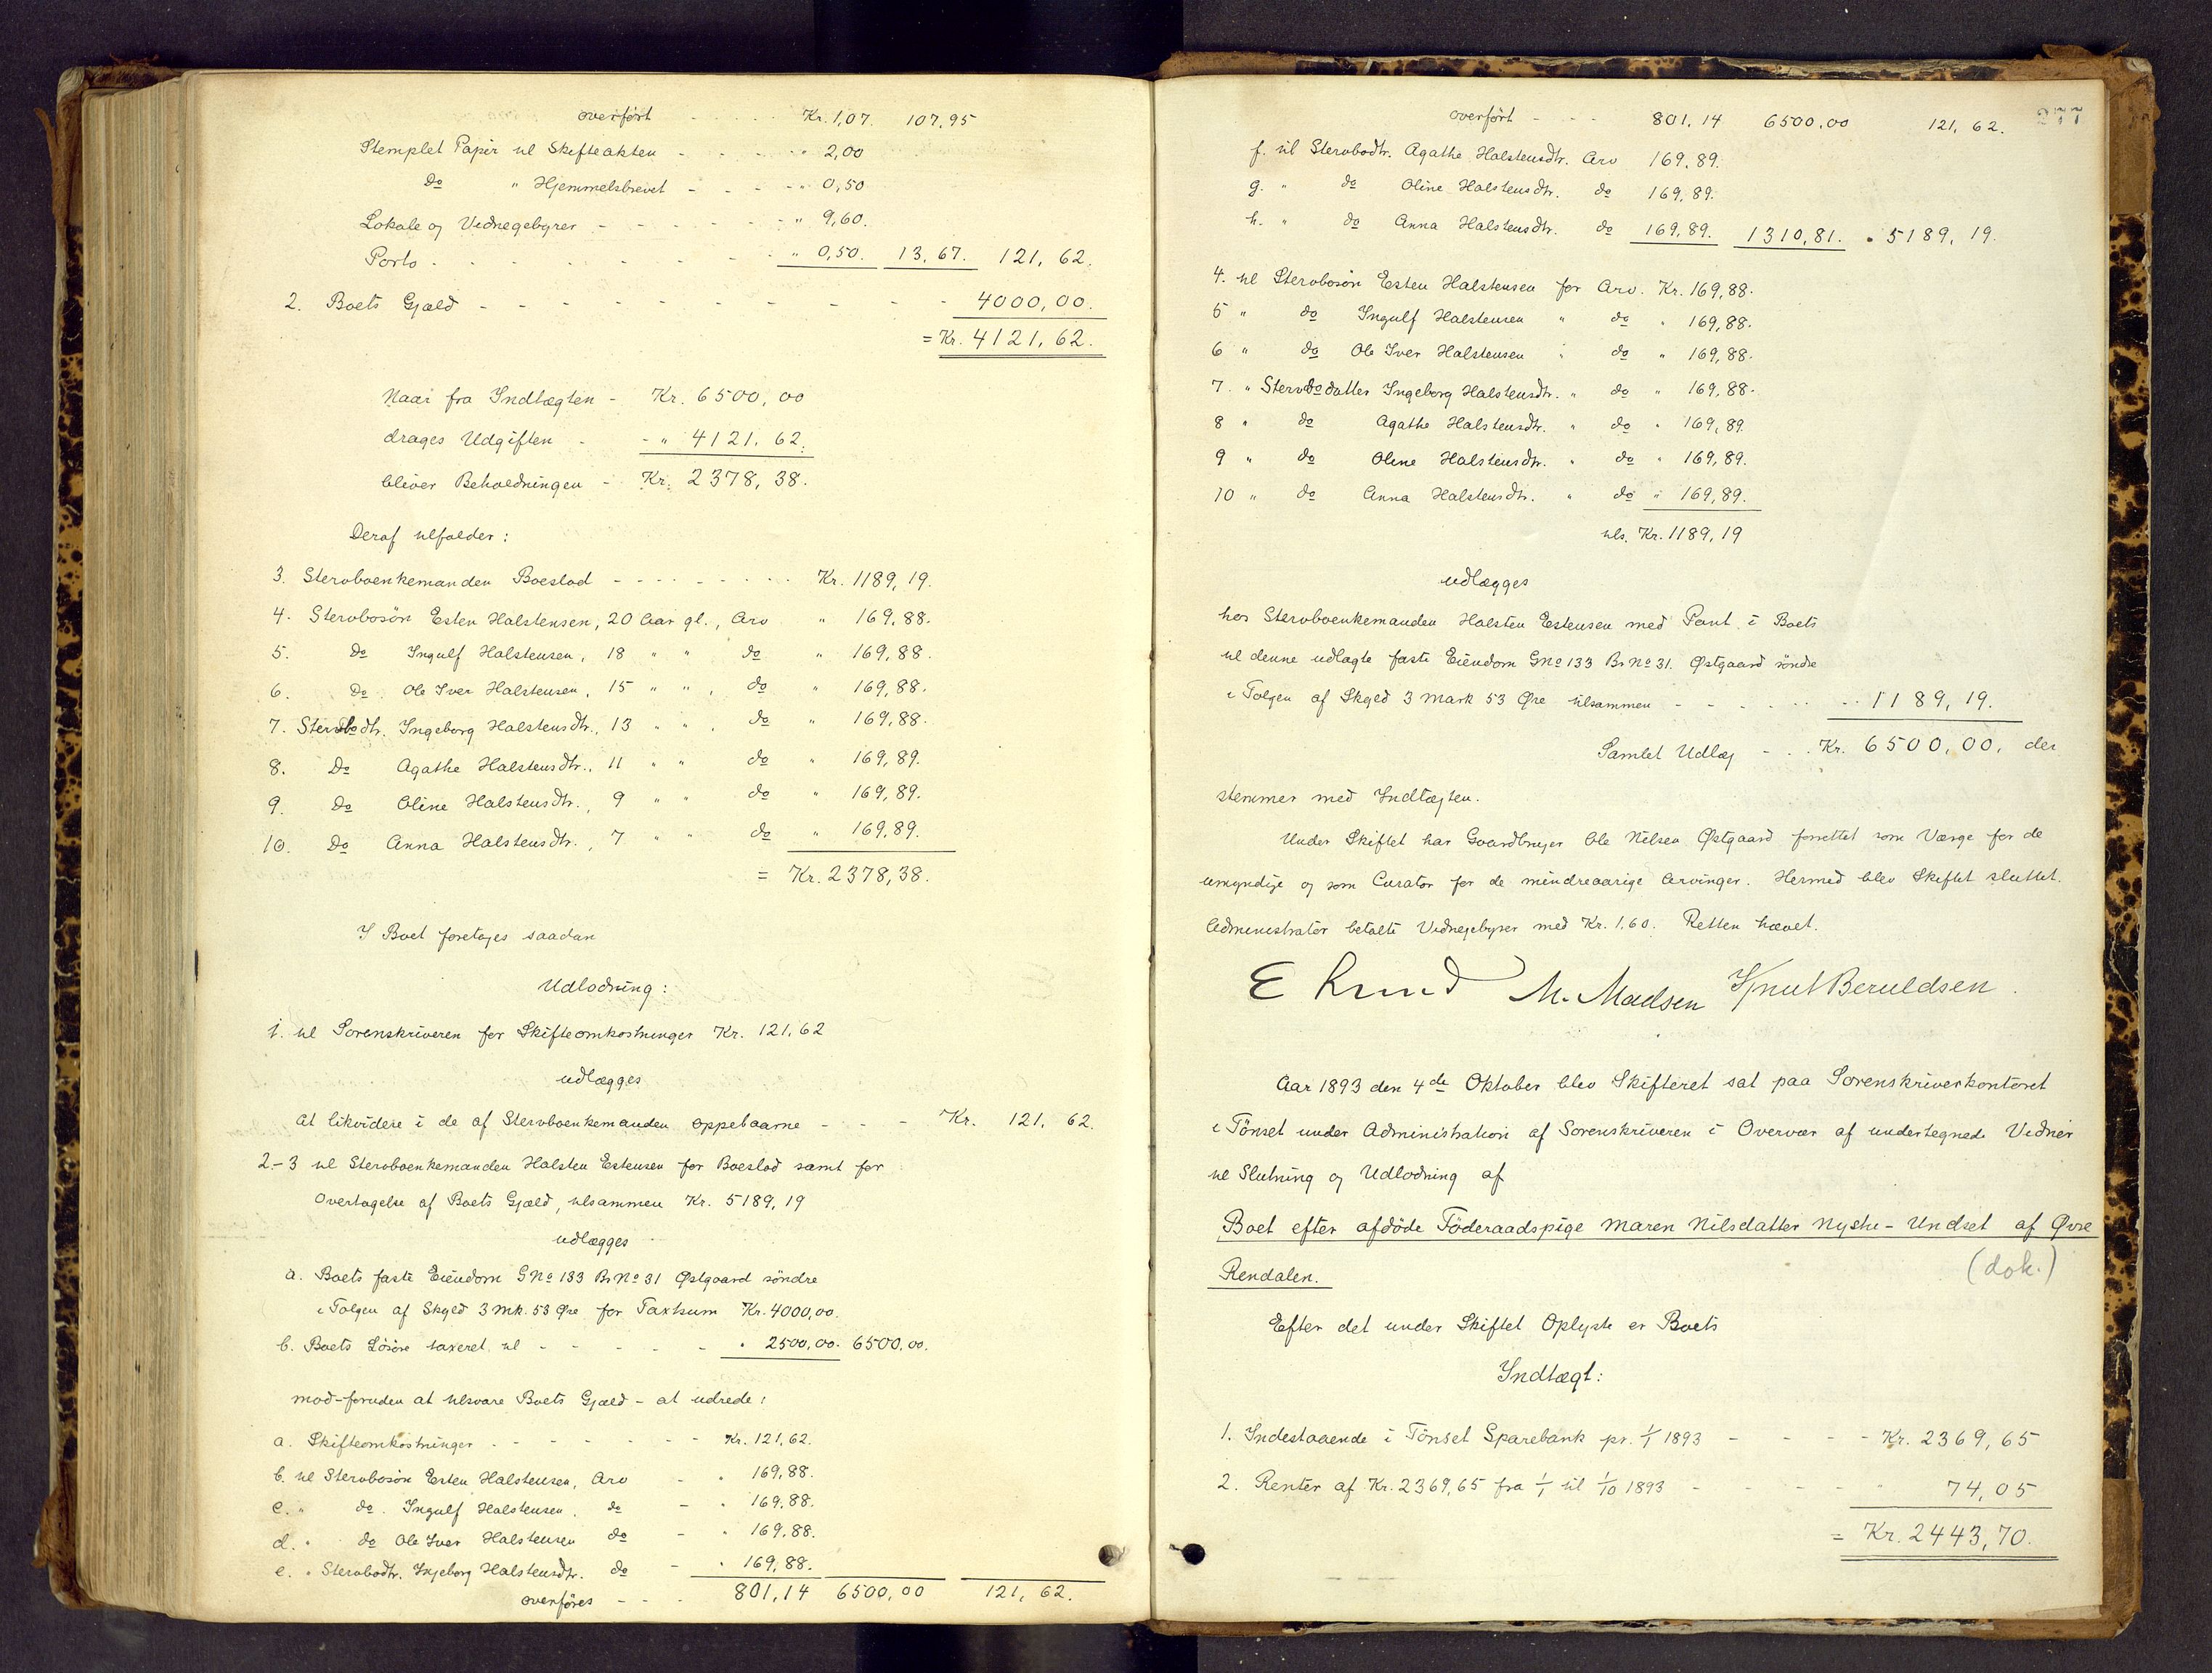 overført - - - - - Kr. 1,07. 107,95
Stemplet Papir til Skifteakten - - - - " 2,00
do " Hjemmelsbrevet - - - - " 0,50
Lokale og Vidnegebyrer - - - - - " 9,60.
Porto - - - - - - - " 0,50. 13,67. 121,62.
2. Boets Gjæld - - - - - - - - - 4000,00.
= Kr. 4121,62.
Naar fra Indtægten - Kr. 6500,00
drages Udgiften - - " 4121,62.
bliver Beholdningen - Kr. 2378,38.
Deraf tilfalder:
3. Stervboenkemanden Boeslod - - - - - - - - Kr. 1189,19.
4. Stervbosøn Esten Halstensen, 20 Aar gl., Arv " 169,88.
5. do Ingulf Halstensen, 18 " " do " 169,88.
6. do. Ole Iver Halstensen, 15 " " , do " 169,88.
7. Stervbodtr. Ingeborg Halstensdtr., 13 " " , do " 169,88.
8. Do Agathe Halstensdtr., 11 " " do " 169,89.
9. do Oline Halstensdtr., 9 " " do " 169,89.
10. Do Anna Halstensdtr., 7 " " do " 169,89.
= Kr. 2378,38.
I Boet foretages saadan
Udlodning:
1. til Sorenskriveren for Skifteomkostninger Kr. 121,62
udlægges
at likvidere i de af Stervboenkemanden oppebaarne - - - Kr. 121,62.
2-3 til Stervboenkemanden Halsten Estensen for Boeslod samt for
Overtagelse af Boets Gjæld, tilsammen Kr. 5189,19
udlægges
a. Boets faste Eiendom GNo 133 BrNo 31 Østgaard søndre
i Tolgen af Skyld 3 Mk. 53 Øre for Taxtsum Kr. 4000,00.
b. Boets Løsøre taxeret til - - - - - " 2500,00. 6500,00.
mod - foruden at tilsvare Boets Gjæld - at udrede:
a. Skifteomkostninger - - - - - - - Kr. 121,62.
b. til Stervbosøn Esten Halstensen, Arv - " 169,88.
c. " do. Ingulf Halstensen, do - " 169,88.
d. " do Ole Iver Halstensen do - " 169,88.
e. " Stervbodtr. Ingeborg Halstensdtr. do - " 169,88.
overføres - - - 801,14 6500,00 121,62.
277
overført - - - 801,14 6500,00 121,62.
f. til Stervbodtr. Agathe Halstensdtr. Arv 169,89.
g. " do Oline Halstensdtr. do 169,89.
h. " do Anna Halstensdtr. do 169,89. 1310,81. " 5189,19.
4. til Stervbosøn Esten Halstensen for Arv. Kr. 169,88.
5 " do Ingulf Halstensen " do " 169,88.
6 " do Ole Iver Halstensen " do " 169,88.
7. " Stervbodatter Ingeborg Halstensdtr. " do " 169,88.
8 " do Agathe Halstensdtr. " do " 169,89.
9 " do Oline Halstensdtr. " do " 169,89.
10 " do Anna Halstensdtr. " do " 169,89.
tils. Kr. 1189,19
udlægges
hos Stervboenkemanden Halsten Estensen med Pant i Boets
til denne udlagte faste Eiendom GNo 133 BrNo 31. Østgaard søndre
i Tolgen af Skyld 3 Mark 53 Øre tilsammen - - - - - - 1189,19.
Samlet Udlæg - - . Kr. 6500,00, der
stemmer med Indtægten.
Under Skiftet har Gaardbruger Ole Nilsen Østgaard forrettet som Værge for de
umyndige og som Curator for de mindreaarige Arvinger. Hermed blev Skiftet sluttet.
Administrator betalte Vidnegebyrer med Kr. 1,60. Retten hævet.
E Lund M. Madsen Knut Beruldsen.
Aar 1893 den 4de Oktober blev Skifteret sat paa Sorenskriverkontoret
i Tønset under Administration af Sorenskriveren i Overvær af undertegnede Vidner
til Slutning og Udlodning af
Boet efter afdøde Føderaadspige Maren Nilsdatter Nystu-Undset af Øvre
Rendalen.
(dok.)
Efter det under Skiftet Oplyste er Boets
Indtægt:
1. Indestaaende i Tønset Sparebank pr. 1/1 1893 - - - - Kr. 2369,65
2. Renter af Kr. 2369,65 fra 1/1 til 1/10 1893 - - - - " 74,05
= Kr. 2443,70.